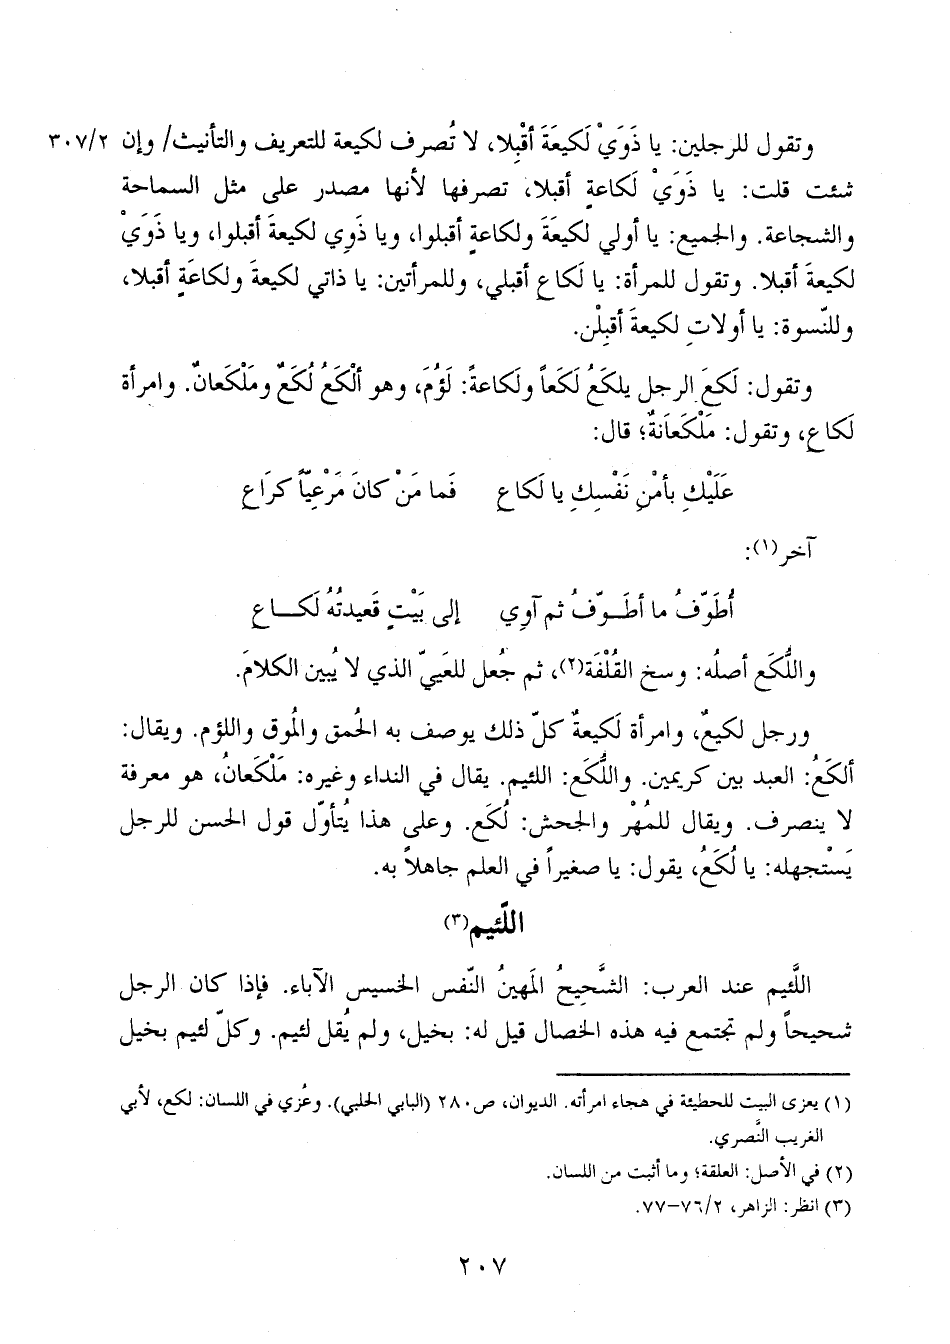 وتقول للرجلين: يا ذَوَيْ لَكيعَةَ أقْبِلا، لا تُصرف لكيعة للتعريف والتأنيث/ وإن ٣٠٧/٢
شئت قلت: يا ذَوَيْ لَكاعةٍ أقبلا، تصرفها لأنها مصدر على مثل السماحة
والشجاعة. والجميع: يا أولي لكيعَةَ ولكاعةٍ أقبلوا، ويا ذَوِي لكيعةَ أقبلوا، ويا ذَوَيْ
لكيعةَ أقبلا. وتقول للمرأة: يا لَكاعِ أقبلي، وللمرأتين: يا ذاتي لكيعةَ ولكاعَةٍ أقبلا،
وللنّسوة: يا أولاتِ لكيعةَ أقبِلْن.
وتقول: لَكعَ الرجل يلكَعُ لَكَعاً ولَكاعةً: لَؤُمَ، وهو ألْكَعُ لُكَعٌ ومَلْكَعانٌ. وامرأة
لَكاعِ، وتقول: مَلْكَعاَنةٌ؛ قال:
عَلَيْكِ بأمْنِ نَفْسِكِ يا لَكاعِ فَما مَنْ كانَ مَرْعِيّاً كراَعِ
آخر(١):
أُطَوّفُ ما أطَــوّفُ ثم آوِي إلى بَيْتٍ قَعيدتُهُ لَكــاعِ
واللُّكَع أصلُه: وسخ القُلْفَة(٢)، ثم جُعل للعَييّ الذي لا يُبين الكلامَ.
ورجل لكيعٌ، وامرأة لَكيعةٌ كلّ ذلك يوصف به الحُمق والمُوق واللؤم. ويقال:
ألكَعُ: العبد بين كريمين. واللُّكَع: اللئيم. يقال في النداء وغيره: مَلْكَعانُ، هو معرفة
لا ينصرف. ويقال للمُهْر والجحش: لُكَع. وعلى هذا يُتأوّل قول الحسن للرجل
يَسْتجهله: يا لُكَعُ، يقول: يا صغيراً في العلم جاهلاً به.
اللّئيم(٣)
اللَّئيم عند العرب: الشَّحيحُ المَهينُ النّفس الخسيس الآباء. فإذا كان الرجل
شحيحاً ولم تجتمع فيه هذه الخصال قيل له: بخيل، ولم يُقل لئيم. وكلّ لئيم بخيل
(١) يعزى البيت للحطيئة في هجاء امرأته. الديوان، ص٢٨٠ (البابي الحلبي). وعُزي في اللسان: لكع، لأبي
الغريب النَّصري.
(٢) في الأصل: العلقة؛ وما أثبت من اللسان.
(٣) انظر: الزاهر، ٧٦/٢–٧٧.
٢٠٧